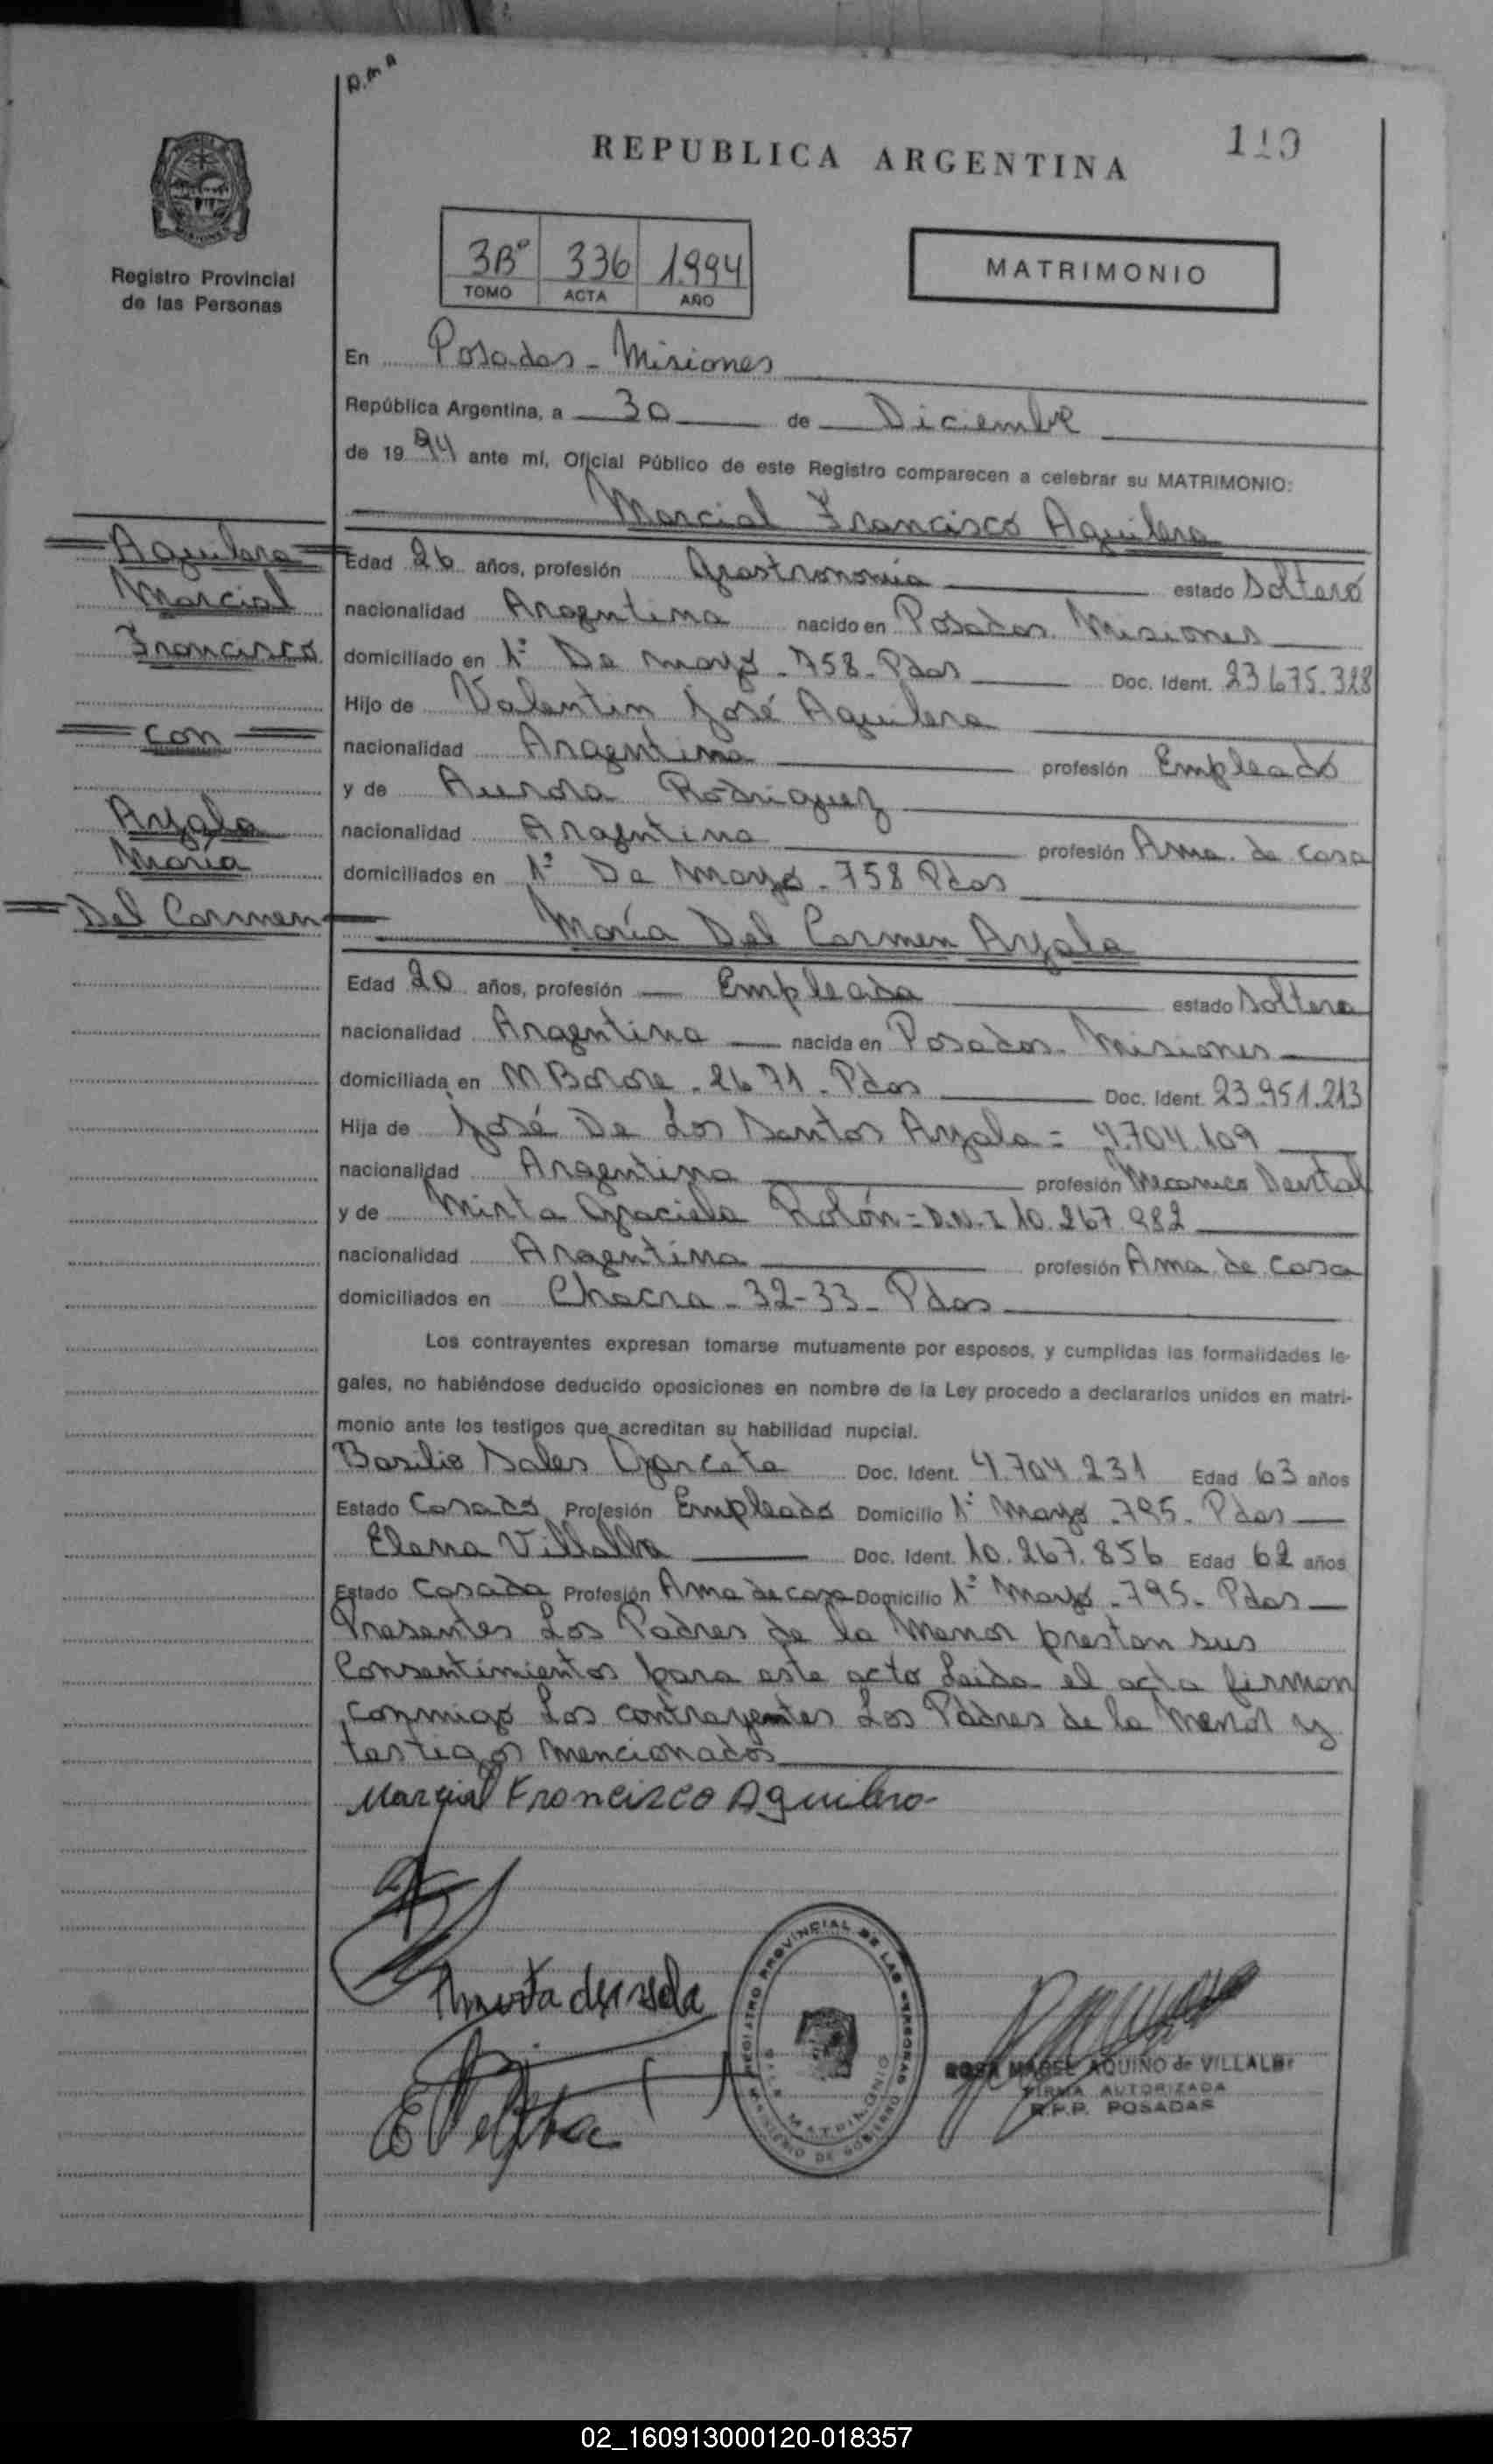 R.m.A
REPUBLICA ARGENTINA
Registro Provincial
de las Personas
3Bº 336 1.994
TOMO ACTA AÑO
MATRIMONIO
En Posadas - Misiones
República Argentina, a 30 de Diciembre
de 19 94 ante mí, Oficial Público de este Registro comparecen a celebrar su MATRIMONIO:
Marcial Francisco Aguilera
Aguilera
Marcial
Francisco
con
Ayala
María
Del Carmen
Edad 26 años, profesión Grastronomía estado Soltero
nacionalidad Argentina nacido en Posadas Misiones
domiciliado en 1º De mayo - 758 - Pdas Doc. Ident. 23.675.328
Hijo de Valentin José Aguilera
nacionalidad Argentina profesión Empleado
y de Aurora Rodriguez
nacionalidad Argentina profesión Ama de casa
domiciliados en 1º De Mayo - 758 Pdas
María Del Carmen Ayala
Edad 20 años, profesión Empleada estado Soltera
nacionalidad Argentina nacida en Posadas - Misiones
domiciliada en M Borore - 2671 - Pdas Doc. Ident. 23.951.213
Hija de José De Los Santos Ayala = 7.704.109
nacionalidad Argentina profesión Mecanico Dental
y de Mirta Graciela Rolón = D.N.I 10.267.982
nacionalidad Argentina profesión Ama de Casa
domiciliados en Chacra - 32-33 - Pdas
Los contrayentes expresan tomarse mutuamente por esposos, y cumplidas las formalidades le-
gales, no habiéndose deducido oposiciones en nombre de la Ley procedo a declararlos unidos en matri-
monio ante los testigos que acreditan su habilidad nupcial.
Basilio Sales Doc. Ident. 4.704.231 Edad 63 años
Estado Casado Profesión Empleado Domicilio 1º Mayo - 795 - Pdas
Elena Villalba Doc. Ident. 10.267.856 Edad 62 años
Estado Casada Profesión Ama de casa Domicilio 1º Mayo - 795 - Pdas
Presentes Los Padres de la Menor prestan sus
Consentimientos para este acto Leida el acta firman
conmigo Los contrayentes Los Padres de la Menor y
testigos mencionados
Marcial Francisco Aguilera
REGISTRO PROVINCIAL DE LAS PERSONAS
MATRIMONIO
MINISTERIO DE GOBIERNO
ROSA MABEL AQUINO de VILLALBA
FIRMA AUTORIZADA
R.P.P. POSADAS
02_160913000120-018357